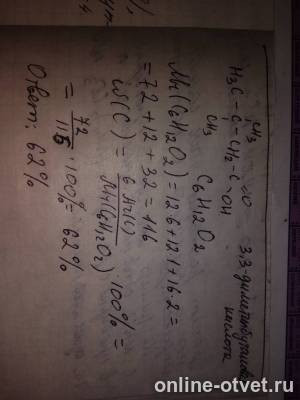 CH3
H3C - C - CH2 - C
O
OH
CH3
3,3-диметилбутановая
кислота
C6H12O2
Mr(C6H12O2) = 12·6 + 12·1 + 16·2 =
= 72 + 12 + 32 = 116
w(C) = 6 Ar(C) / Mr(C6H12O2) · 100% =
= 72 / 116 · 100% = 62%
Ответ: 62%
online-otvet.ru